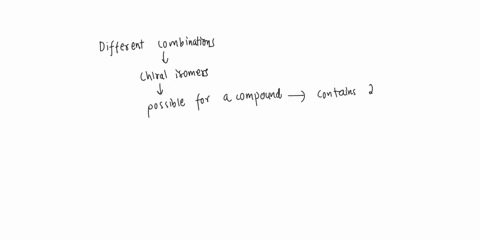 Different combinations
↓
Chiral isomers
↓
possible for a compound → contains 2